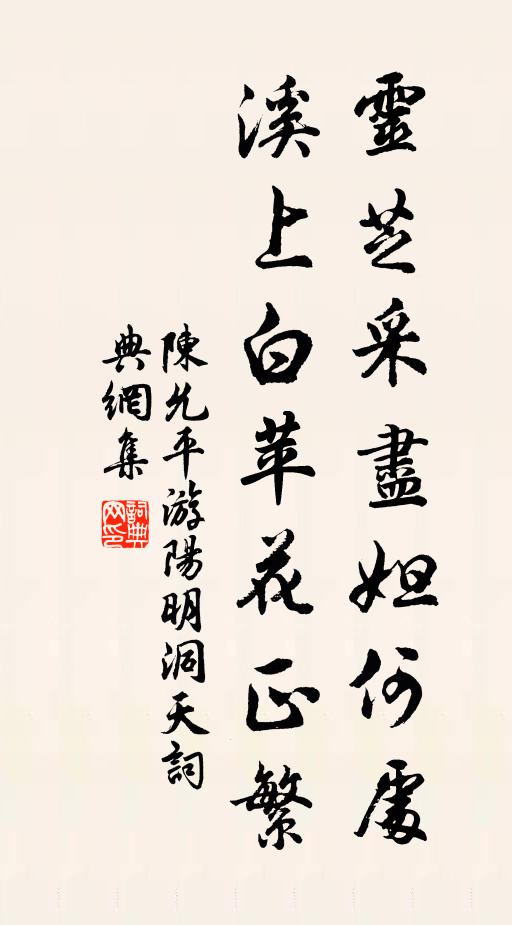 靈芝采盡妲何處
溪上白苹花正繁
陳允平游陽明洞天詞
典網集
詞典網印